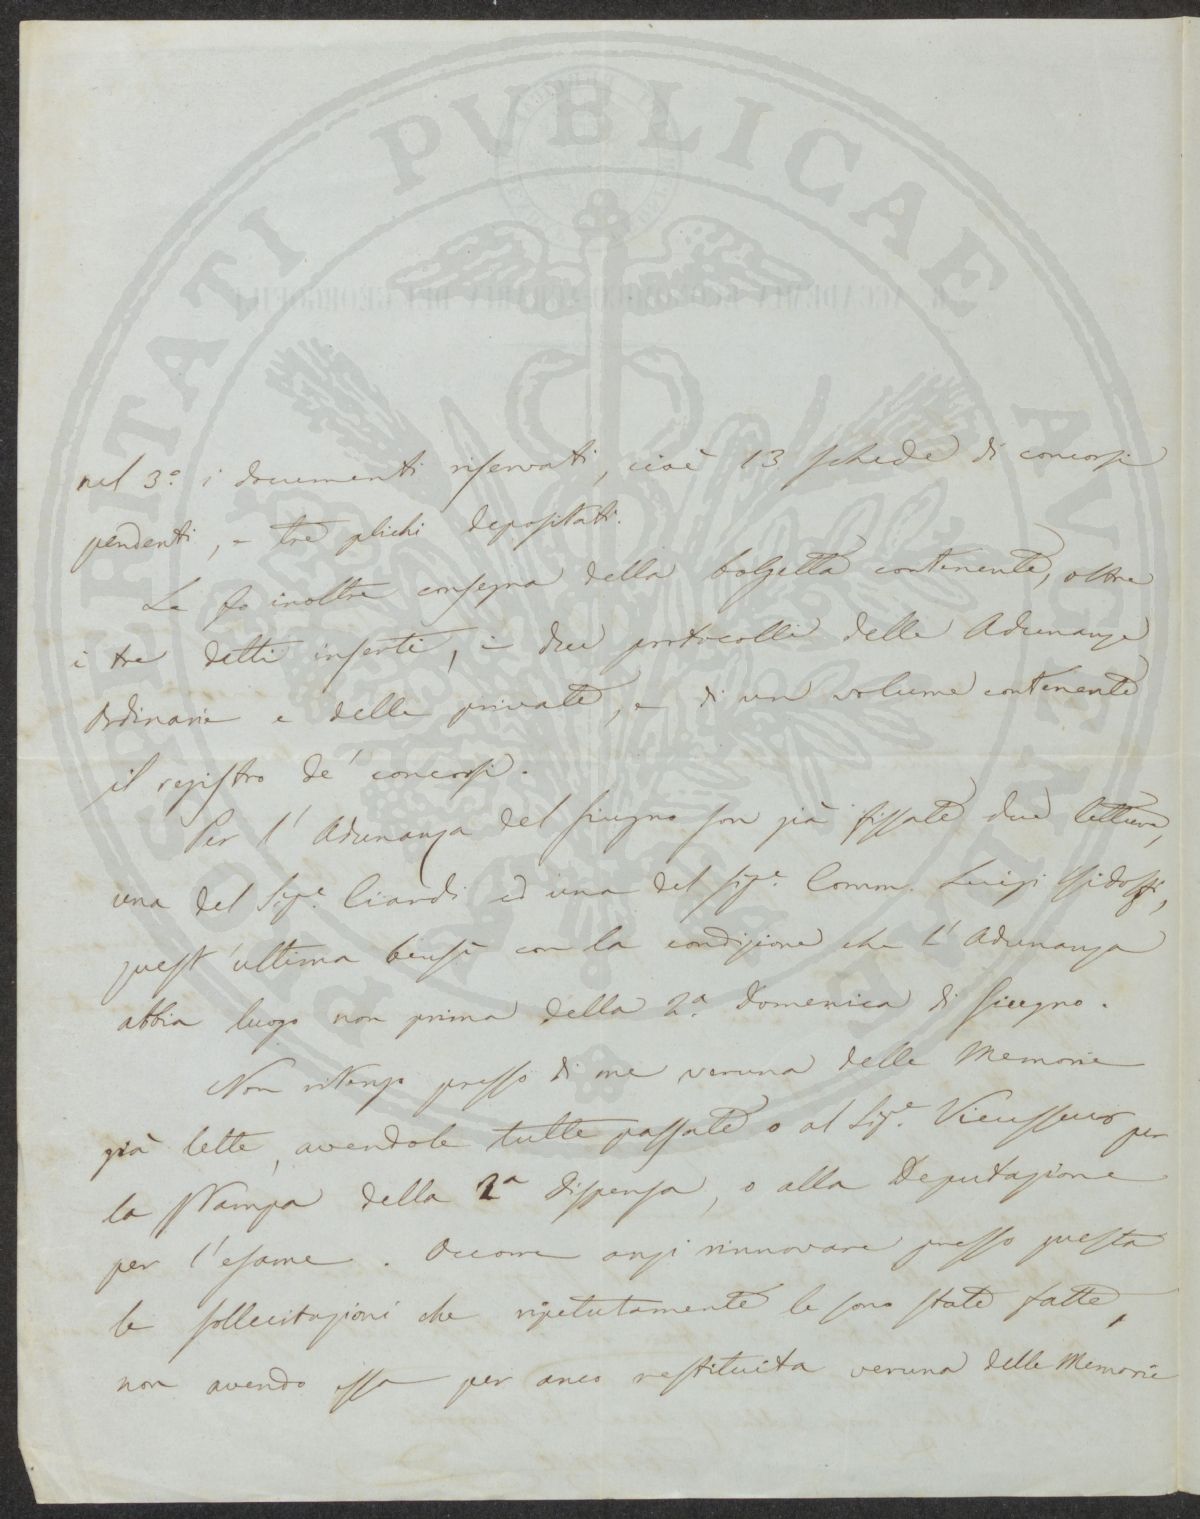 PROSPERITATI PVBLICAE AVGENDAE
nel 3.° i documenti riservati, cioè 13 schede di concorsi
pendenti, e tre plichi depositati.
Le fo inoltre consegna della bolgetta contenente, oltre
i tre detti inserti, i due protocolli delle Adunanze
Ordinarie e delle private, e di un volume contenente
il registro de' concorsi.
Per l' Adunanza del Giugno son già fissate due letture,
una del Sig.e Ciardi ed una del Sig.e Comm. Luigi
quest' ultima bensì con la condizione che l' Adunanza
abbia luogo non prima della 2.a Domenica di Giugno.
Non ritengo presso di me veruna delle Memorie
già lette, avendole tutte passate o al Sig.e Vieusseux per
la stampa della 2a dispensa, o alla Deputazione
per l'esame. Occorre anzi rinnovare presso questa
le sollecitazioni che ripetutamente le sono state fatte,
non avendo essa per anco restituita veruna delle Memorie